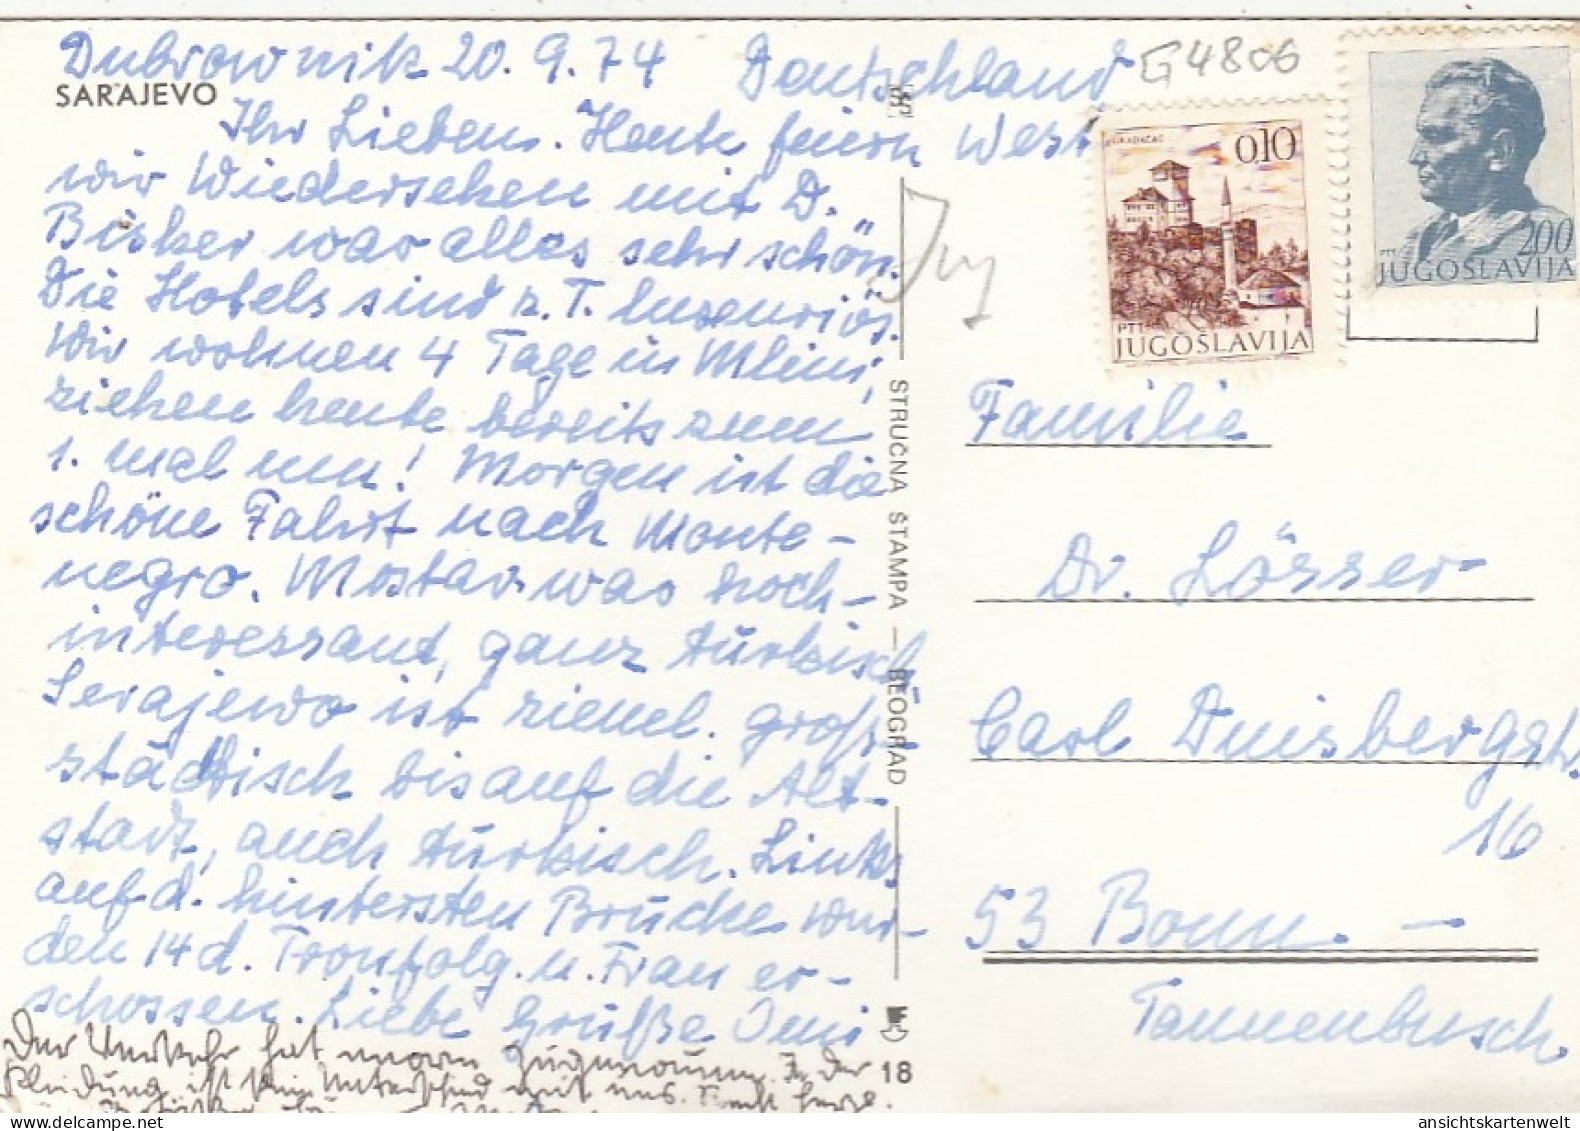 Dubrownik 20.9.74
SARAJEVO
Ihr Lieben. Heute feiern
wir Wiedersehen mit D.
Bisher war alles sehr schön.
Die Hotels sind z.T. luxeuriös.
Wir wohnen 4 Tage in Mlini,
ziehen heute bereits zum
1. mal um! Morgen ist die
schöne Fahrt nach Monte-
negro. Mostar war hoch-
interessant, ganz türkisch
Serajewo ist ziemel. groß-
städtisch bis auf die Alt-
stadt, auch türkisch. Links
auf d. hintersten Brücke wur-
den 14 d. Tronfolg. u. Frau er-
schossen. Liebe Grüße Omi
Der Verkehr hat enorm zugenommen. In der
Kleidung ist kein Unterschied mit uns.
18
STRUČNA ŠTAMPA — BEOGRAD
Jug
Deutschland
West
G4806
GRADAČAC
0,10
PTT
JUGOSLAVIJA
2,00
PTT
JUGOSLAVIJA
Familie
Dr. Lösser
Carl Duisbergstr.
16
53 Bonn. —
Tannenbusch.
ansichtskartenwelt
delcampe.net